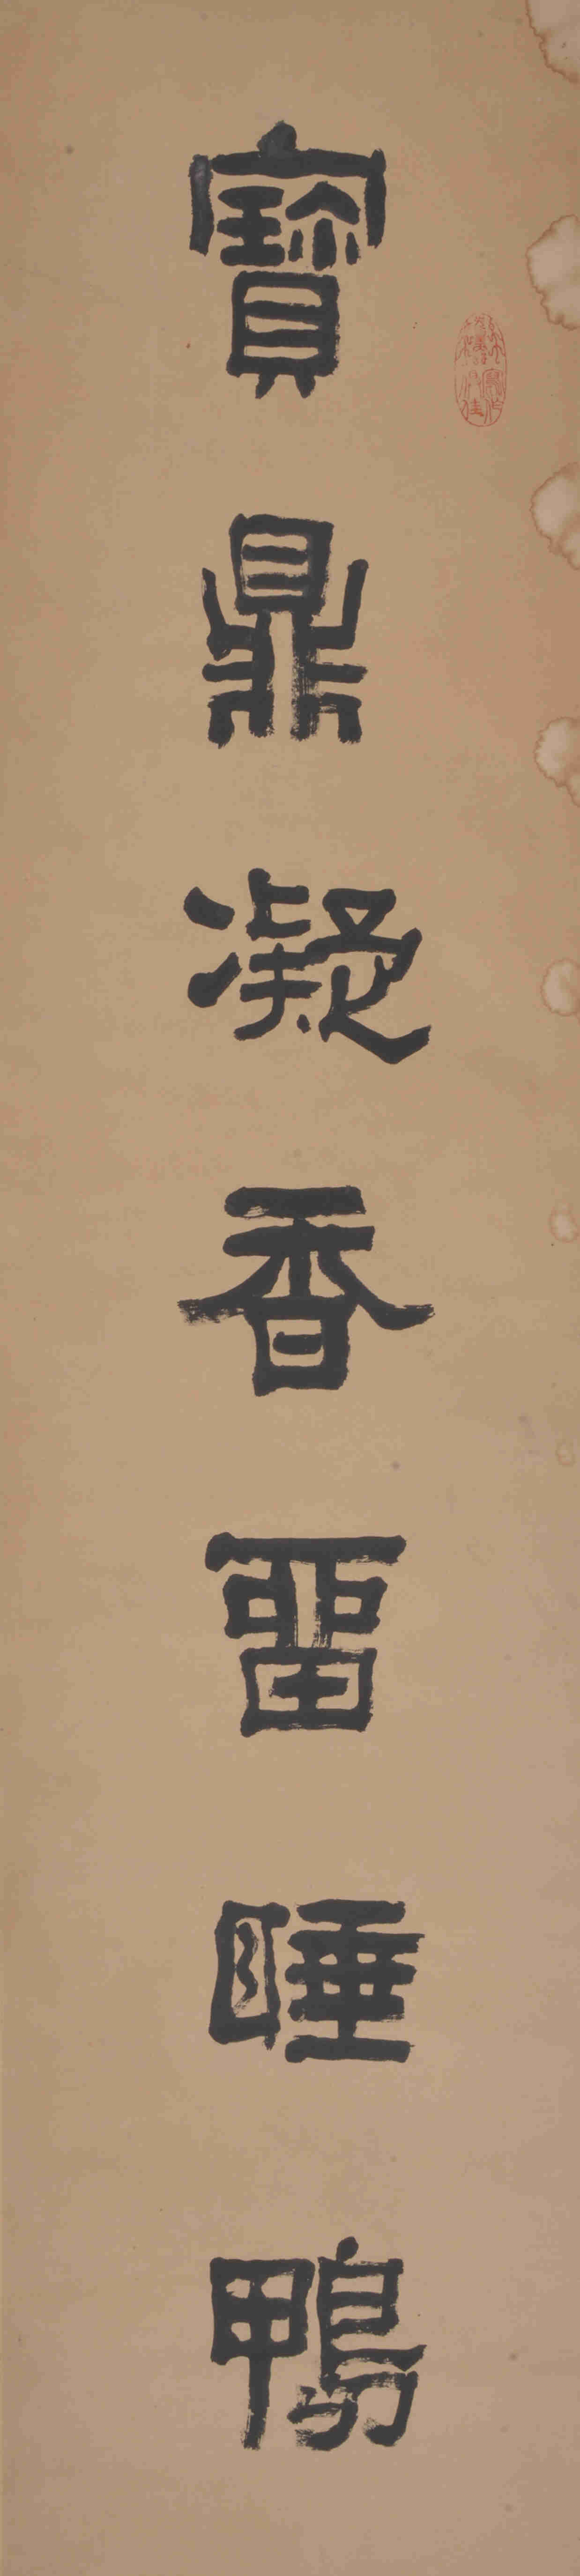 寶鼎凝香留睡鴨